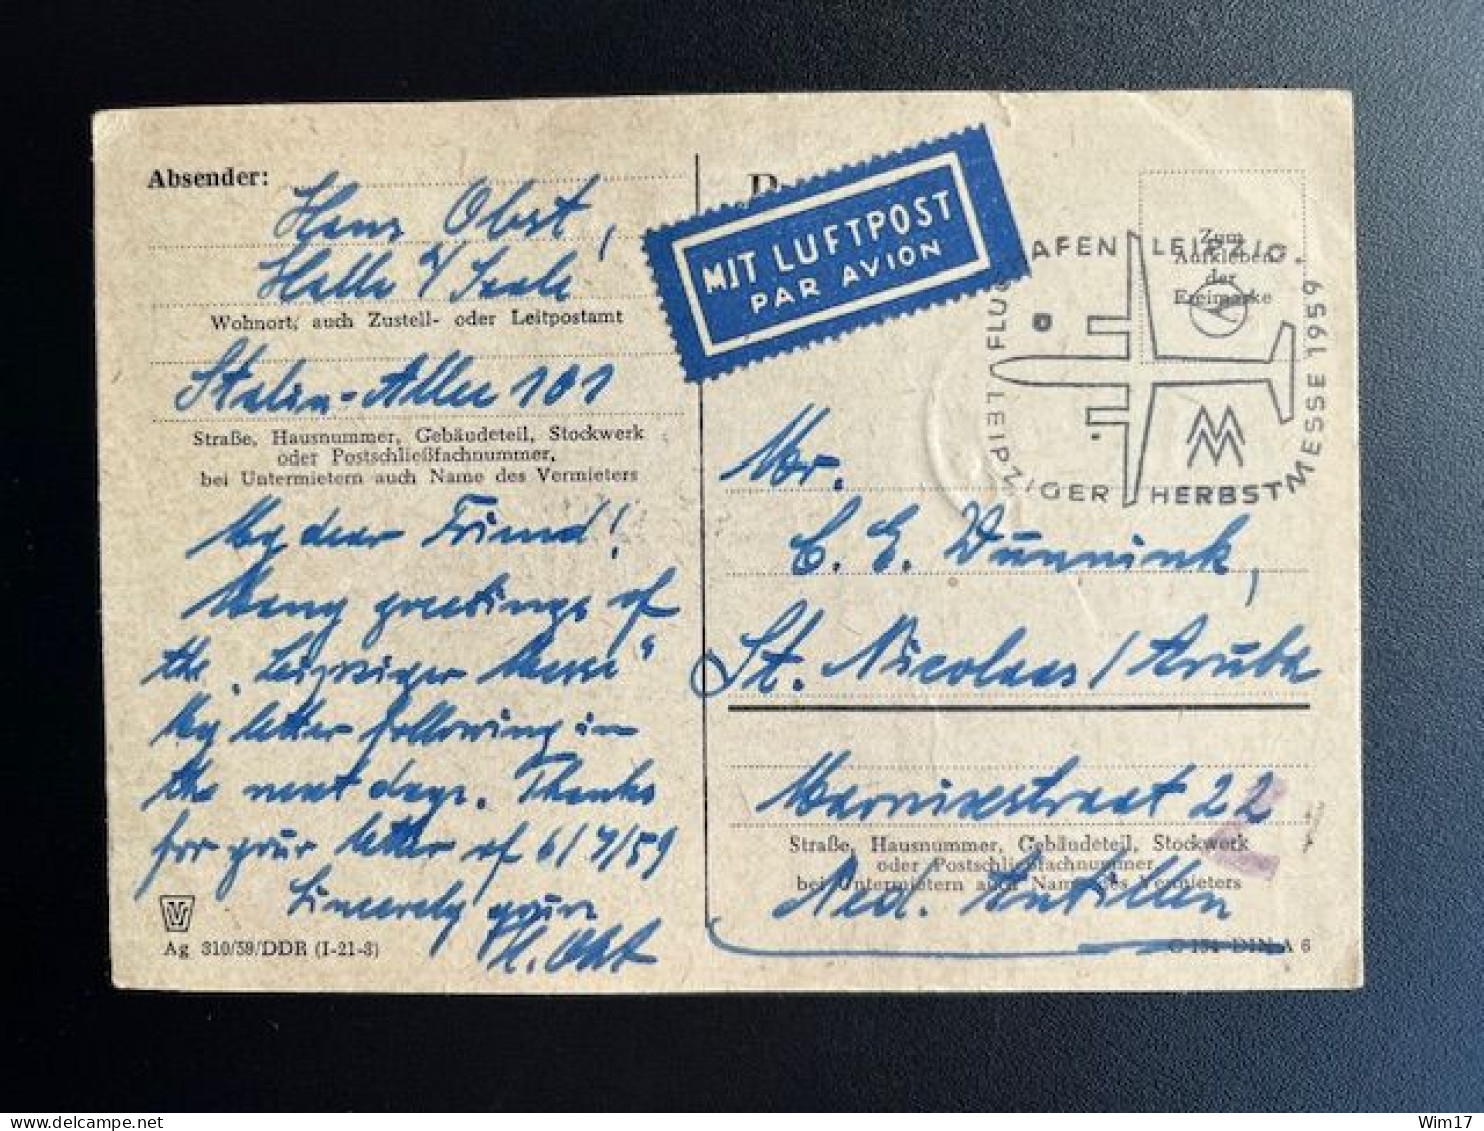 Absender:
Hans Obst,
Halle a/ Saale
Wohnort, auch Zustell- oder Leitpostamt
Stalin-Allee 101
Straße, Hausnummer, Gebäudeteil, Stockwerk
oder Postschließfachnummer,
bei Untermietern auch Name des Vermieters
My dear Friend!
Many greetings of
the „Leipziger Messe"
My letter following in
the next days. Thanks
for your letter of 6/7/59
Sincerely your
H. Obst
Ag 310/59/DDR (I-21-3)
MIT LUFTPOST
PAR AVION
LEIPZIG
LEIPZIGER HERBSTMESSE 1959
MM
Zum
Aufkleben
der
Freimarke
Mr.
C. E. Dunnink,
St. Nicolaas / Aruba
Marnixstraat 22
Straße, Hausnummer, Gebäudeteil, Stockwerk
oder Postschließfachnummer
bei Untermietern auch Name des Vermieters
Ned. Antillen
C 154 DIN A 6
Wim17